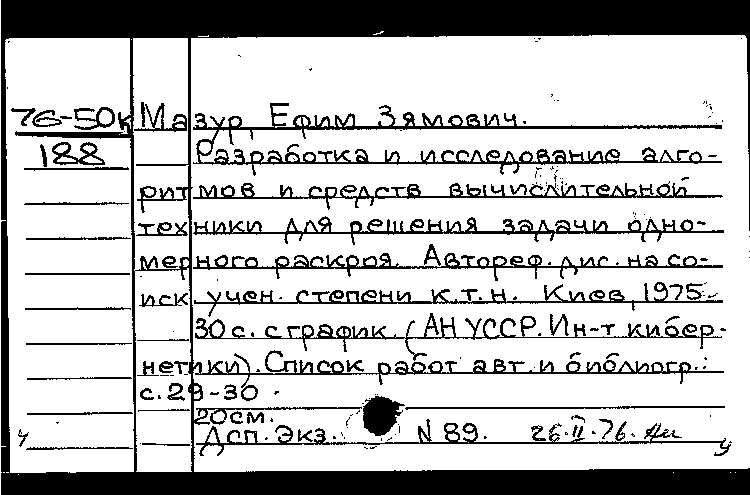 76-50к Мазур, Ефим Зямович.
188 Разработка и исследование алго-
ритмов и средств вычислительной
техники для решения задачи одно-
мерного раскроя. Автореф. дис. на со-
иск. учен. степени к.т.н. Киев, 1975-
30 с. с график. (АН УССР. Ин-т кибер-
нетики). Список работ авт. и библиогр.:
с. 29-30.
20см.
Дсп. Экз. N 89. 26.II.76.
у у